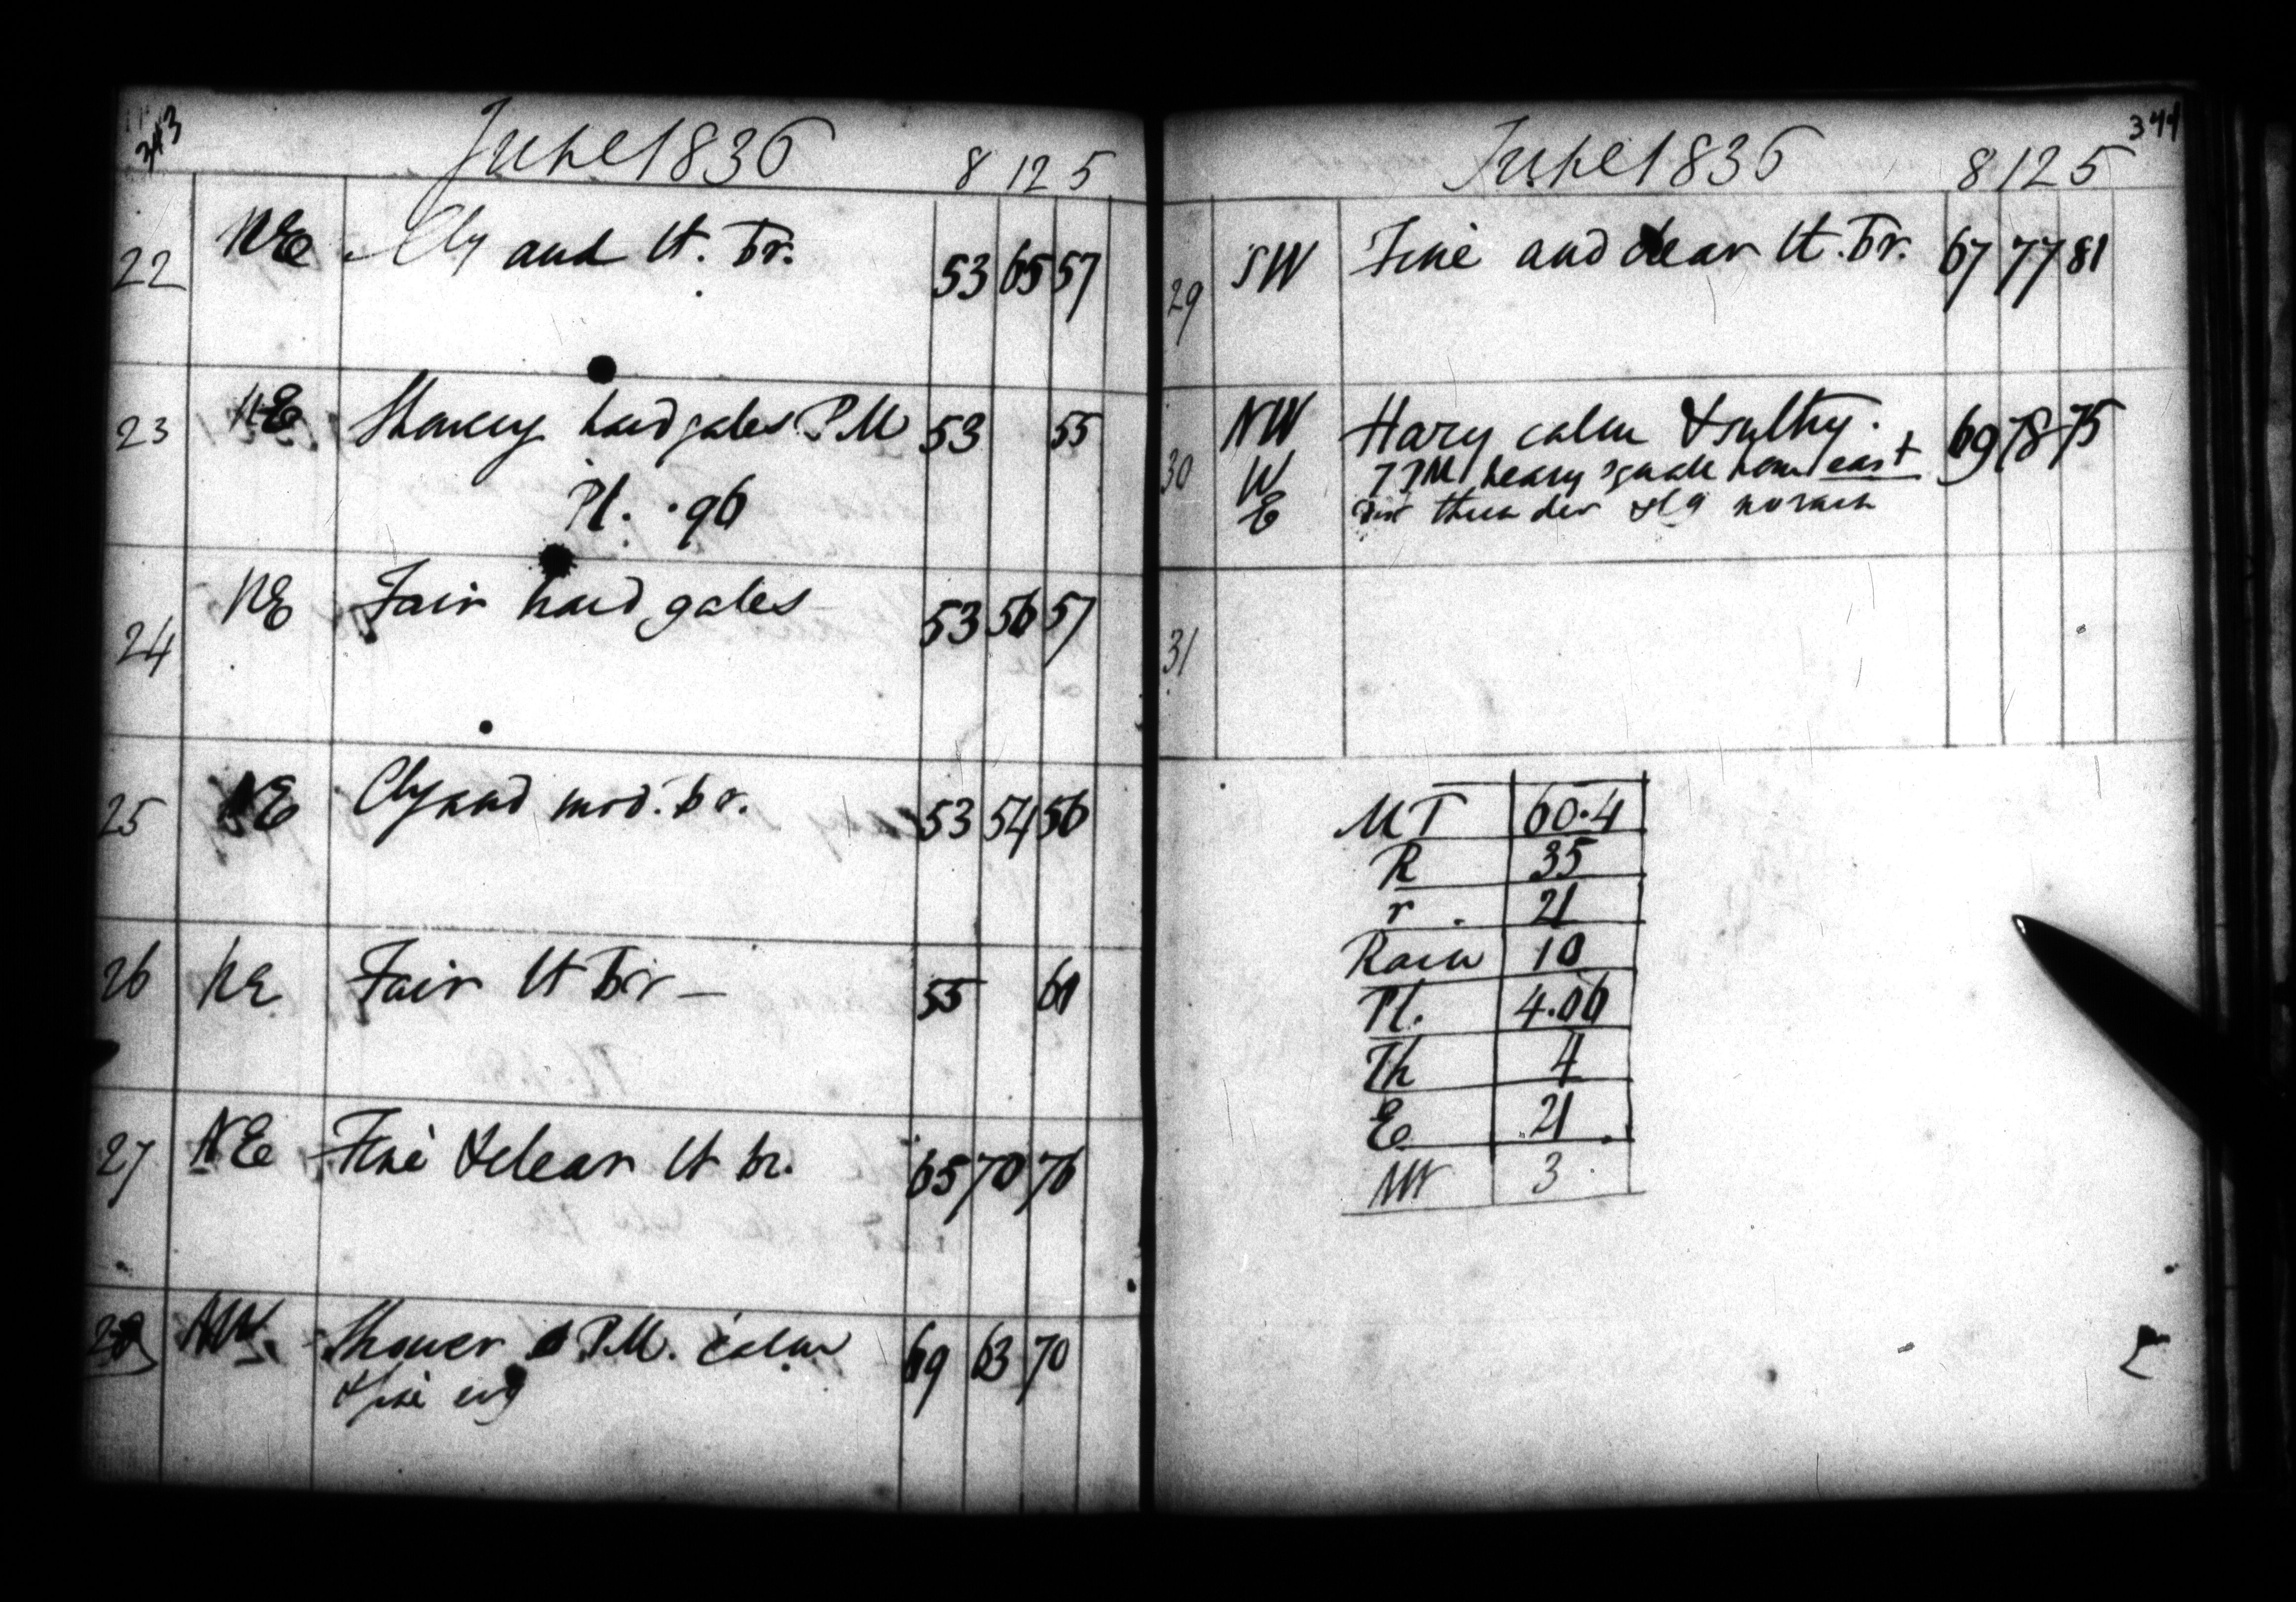 343
June 1836 8 12 5
22 NE Cly and lt. br. 53 65 57
23 NE Showery hard gales P.M 53 55
Pl. .96
24 NE Fair hard gales 53 56 57
25 NE Cly and mod. br. 53 54 56
26 NE Fair lt br — 55 61
27 NE Fine & clear lt br. 65 70 76
28 NW Shower P.M. calm 69 63 70
& fine evg
344
June 1836 8 12 5
29 SW Fine and clear lt. br. 67 77 81
30 NW Hazy calm & sultry. 69 78 75
W 7 PM heavy squall from east
E dist thunder & lg no rain
31
MT 60.4
R 35
r . 21
Rain 10
Pl. 4.06
Th 4
E 21
NW 3